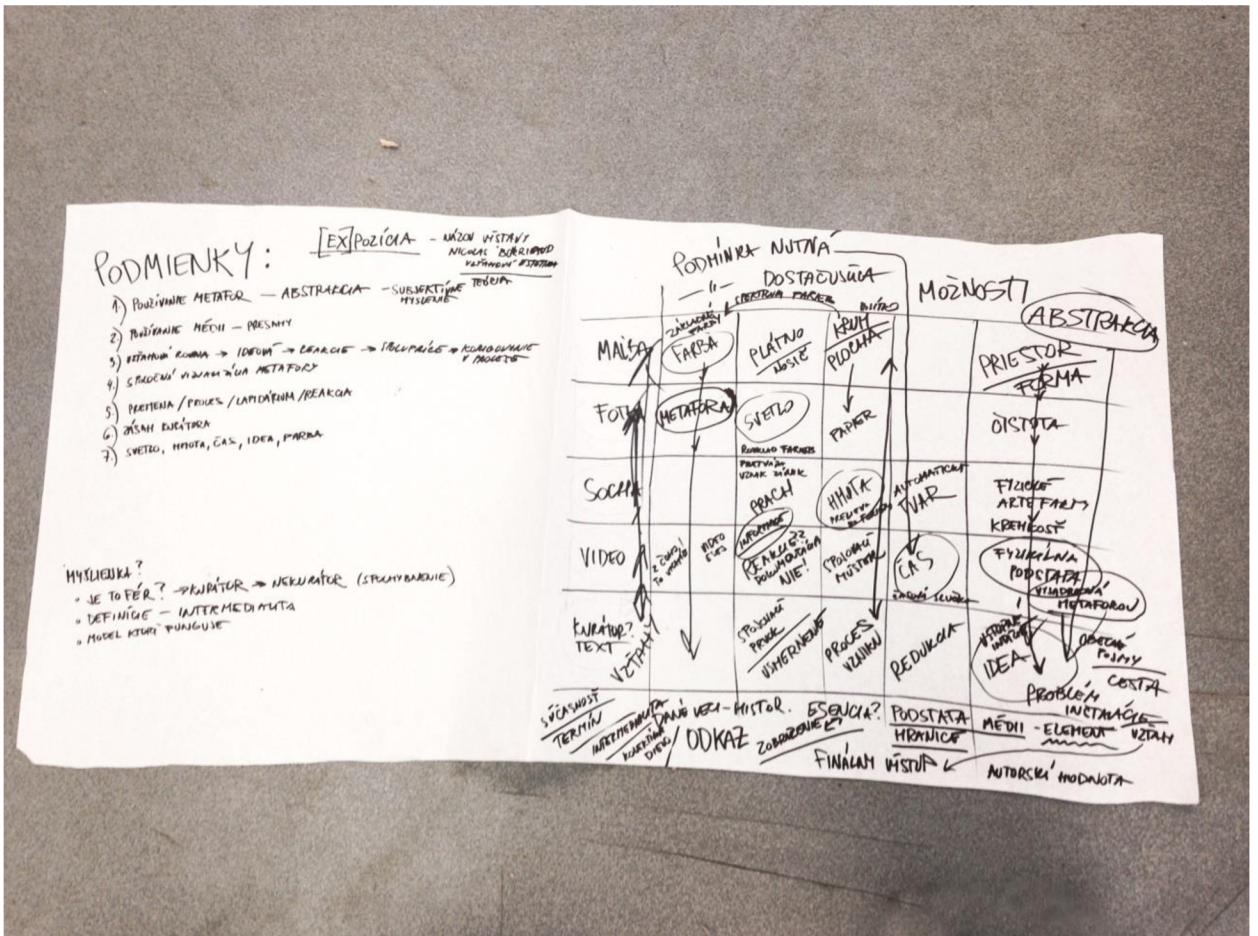 PODMIENKY:
[EX]POZÍCIA – NÁZOV VÝSTAVY
NICOLAS BOURRIAUD
VZŤAHOVÁ ESTETIKA
TEÓRIA
1.) POUŽÍVANIE METAFOR — ABSTRAKCIA – SUBJEKTÍVNE
MYSLENIE
2.) POUŽÍVANIE MÉDII – PRESAHY
3.) VZŤAHOVÁ ROVINA → IDEOVÁ → REAKCIE → SPOLUPRÁCE → KORIGOVANIE
V PROCESE
4.) METAFORY
5.) PREMENA / PROCES / LAPIDÁRIUM / REAKCIA
6.) ZÁSAH KURÁTORA
7.) SVETLO, HMOTA, ČAS, IDEA, FARBA
MYŠLIENKA?
• JE TO FÉR? → KURÁTOR → NEKURÁTOR (SPOCHYBNENIE)
• DEFINÍCIE – INTERMEDIALITA
• MODEL KTORÝ FUNGUJE
PODMIENKA NUTNÁ
–"– DOSTAČUJÚCA
MOŽNOSTI
ABSTRAKCIA
SPEKTRUM FARIEB
ZÁKLADNÉ
FARBY
MAĽBA
FARBA
PLÁTNO
NOSIČ
KRUH
PLOCHA
PRIESTOR
FORMA
FOTKA
METAFORA
SVETLO
PAPIER
ČISTOTA
ROZKLAD FARIEB
SOCHA
PRACH
INFORMÁCIE
HMOTA
AUTOMATICKY
TVAR
FYZICKÉ
ARTEFAKTY
KREHKOSŤ
VIDEO
VIDEO
ESEJ
REAKCIE??
DOKUMENTÁCIA
NIE!
SPOJOVACÍ
MÔSTIK
ČAS
FYZIKÁLNA
PODSTATA
VYJADRENÁ
METAFOROU
KURÁTOR?
TEXT
VZŤAHY
SPOJOVACÍ
PRVOK
USMERNENIE
PROCES
VZNIKU
REDUKCIA
IDEA
POJMY
CESTA
PROBLÉM
INŠTALÁCIE
VZŤAHY
SÚČASNOSŤ
TERMÍN
INTERMEDIALITA
DANÉ VECI – HISTOR.
/ ODKAZ
ESENCIA?
ZOBRAZENIE?
PODSTATA
HRANICE
MÉDII – ELEMENT
FINÁLNY VÝSTUP
AUTORSKÁ HODNOTA